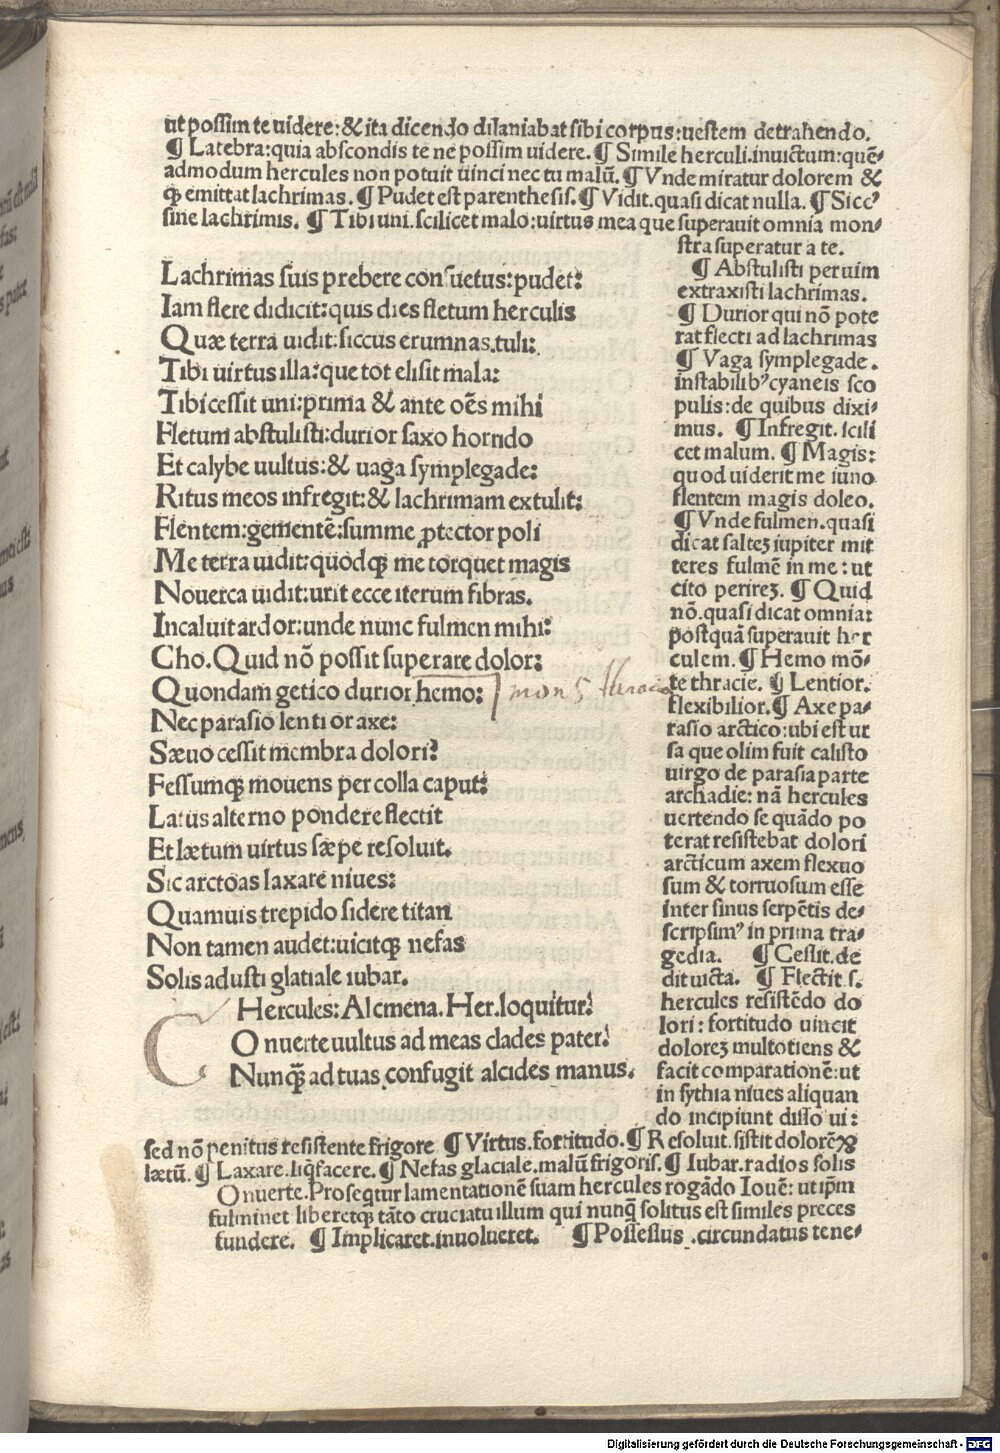 ut possim te uidere:& ita dicendo dilaniabat sibi corpus:uestem detrahendo.
¶ Latebra:quia abscondis te ne possim uidere.¶ Simile herculi.inuictum:quē-
admodum hercules non potuit uinci nec tu malū.¶ Vnde miratur dolorem &
ꝙ emittat lachrimas.¶ Pudet est parenthesis.¶ Vidit.quasi dicat nulla.¶ Siccꝰ
sine lachrimis. ¶ Tibi uni.scilicet malo:uirtus mea que superauit omnia mon-
stra superatur a te.
Lachrimas suis prebere consuetus:pudet:
Iam flere didicit:quis dies fletum herculis
Quæ terra uidit:siccus erumnas.tuli:
Tibi uirtus illa:que tot elisit mala:
Tibi cessit uni:prima & ante oēs mihi
Fletum abstulisti:durior saxo horrido
Et calybe uultus:& uaga symplegade:
Ritus meos infregit:& lachrimam extulit:
Flentem:gementē:summe ꝓtector poli
Me terra uidit:quodqꝫ me torquet magis
Nouerca uidit:urit ecce iterum fibras.
Incaluit ardor:unde nunc fulmen mihi:
Cho.Quid nō possit superare dolor:
Quondam getico durior hemo:
mons thracie
Nec parasio lentior axe:
Sæuo cessit membra dolori:
Fessumqꝫ mouens per colla caput:
Latus alterno pondere flectit
Et lætum uirtus sæpe resoluit.
Sic arctoas laxare niues:
Quamuis trepido sidere titan
Non tamen audet:uicitqꝫ nefas
Solis adusti glatiale iubar.
Hercules:Alcmena.Her.loquitur:
C
Onuerte uultus ad meas clades pater:
Nunqꝫ ad tuas confugit alcides manus.
¶ Abstulisti per uim
extraxisti lachrimas.
¶ Durior qui nō pote
rat flecti ad lachrimas
¶ Vaga symplegade.
instabilibꝰ cyaneis sco
pulis:de quibus dixi-
mus. ¶ Infregit.scili
cet malum. ¶ Magis:
quod uiderit me iuno
flentem magis doleo.
¶ Vnde fulmen.quasi
dicat salteꝫ iupiter mit
teres fulmē in me:ut
cito perireꝫ. ¶ Quid
nō.quasi dicat omnia:
postquā superauit her
culem.¶ Hemo mō-
te thracie. ¶ Lentior.
flexibilior.¶ Axe pa-
rasio arctico:ubi est ur
sa que olim fuit calisto
uirgo de parasia parte
archadie: nā hercules
uertendo se quādo po
terat resistebat dolori
arcticum axem flexuo
sum & tortuosum esse
inter sinus serpētis de-
scripsimꝰ in prima tra-
gedia. ¶ Cessit.de
dit uicta. ¶ Flectit s.
hercules resistēdo do
lori: fortitudo uincit
doloreꝫ multotiens &
facit comparationē:ut
in sythia niues aliquan
do incipiunt dissolui:
sed nō penitus resistente frigore ¶ Virtus.fortitudo.¶ Resoluit.sistit dolorēꝫ
lætū.¶ Laxare.liqfacere.¶ Nefas glaciale.malū frigoris.¶ Iubar.radios solis
Onuerte.Proseqtur lamentationē suam hercules rogādo Iouē: ut ipm
fulminet liberetqꝫ tāto cruciatu illum qui nunqꝫ solitus est similes preces
fundere. ¶ Implicaret.inuolueret. ¶ Possessus.circundatus tene-
Digitalisierung gefördert durch die Deutsche Forschungsgemeinschaft - DFG